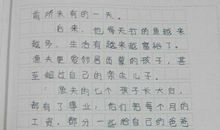 前所未有的一天。
后来，他每天钓的鱼越来
越多，生活有越来越富裕了。
渔夫更爱惜与尚蕾的孩子，甚至
超过自己的亲生儿子。
渔夫的七个孩子长大后，
都有了事业，他们把每个月的
工资，部分一起给自己的爸爸